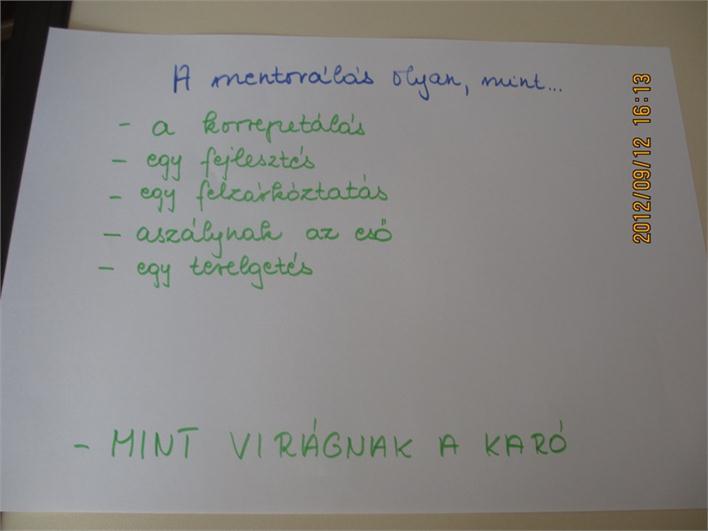 A mentorálás olyan, mint...
- a korrepetálás
- egy fejlesztés
- egy felzárkóztatás
- aszálynak az eső
- egy terelgetés
- MINT VIRÁGNAK A KARÓ
2012/09/12 16:13